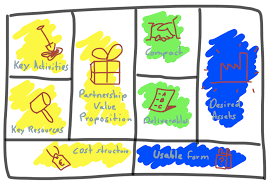 Key Activities
Key Resources
Partnership
Value
Proposition
Compacts
Deliverables
Desired
Assets
Cost Structure
Usable Form